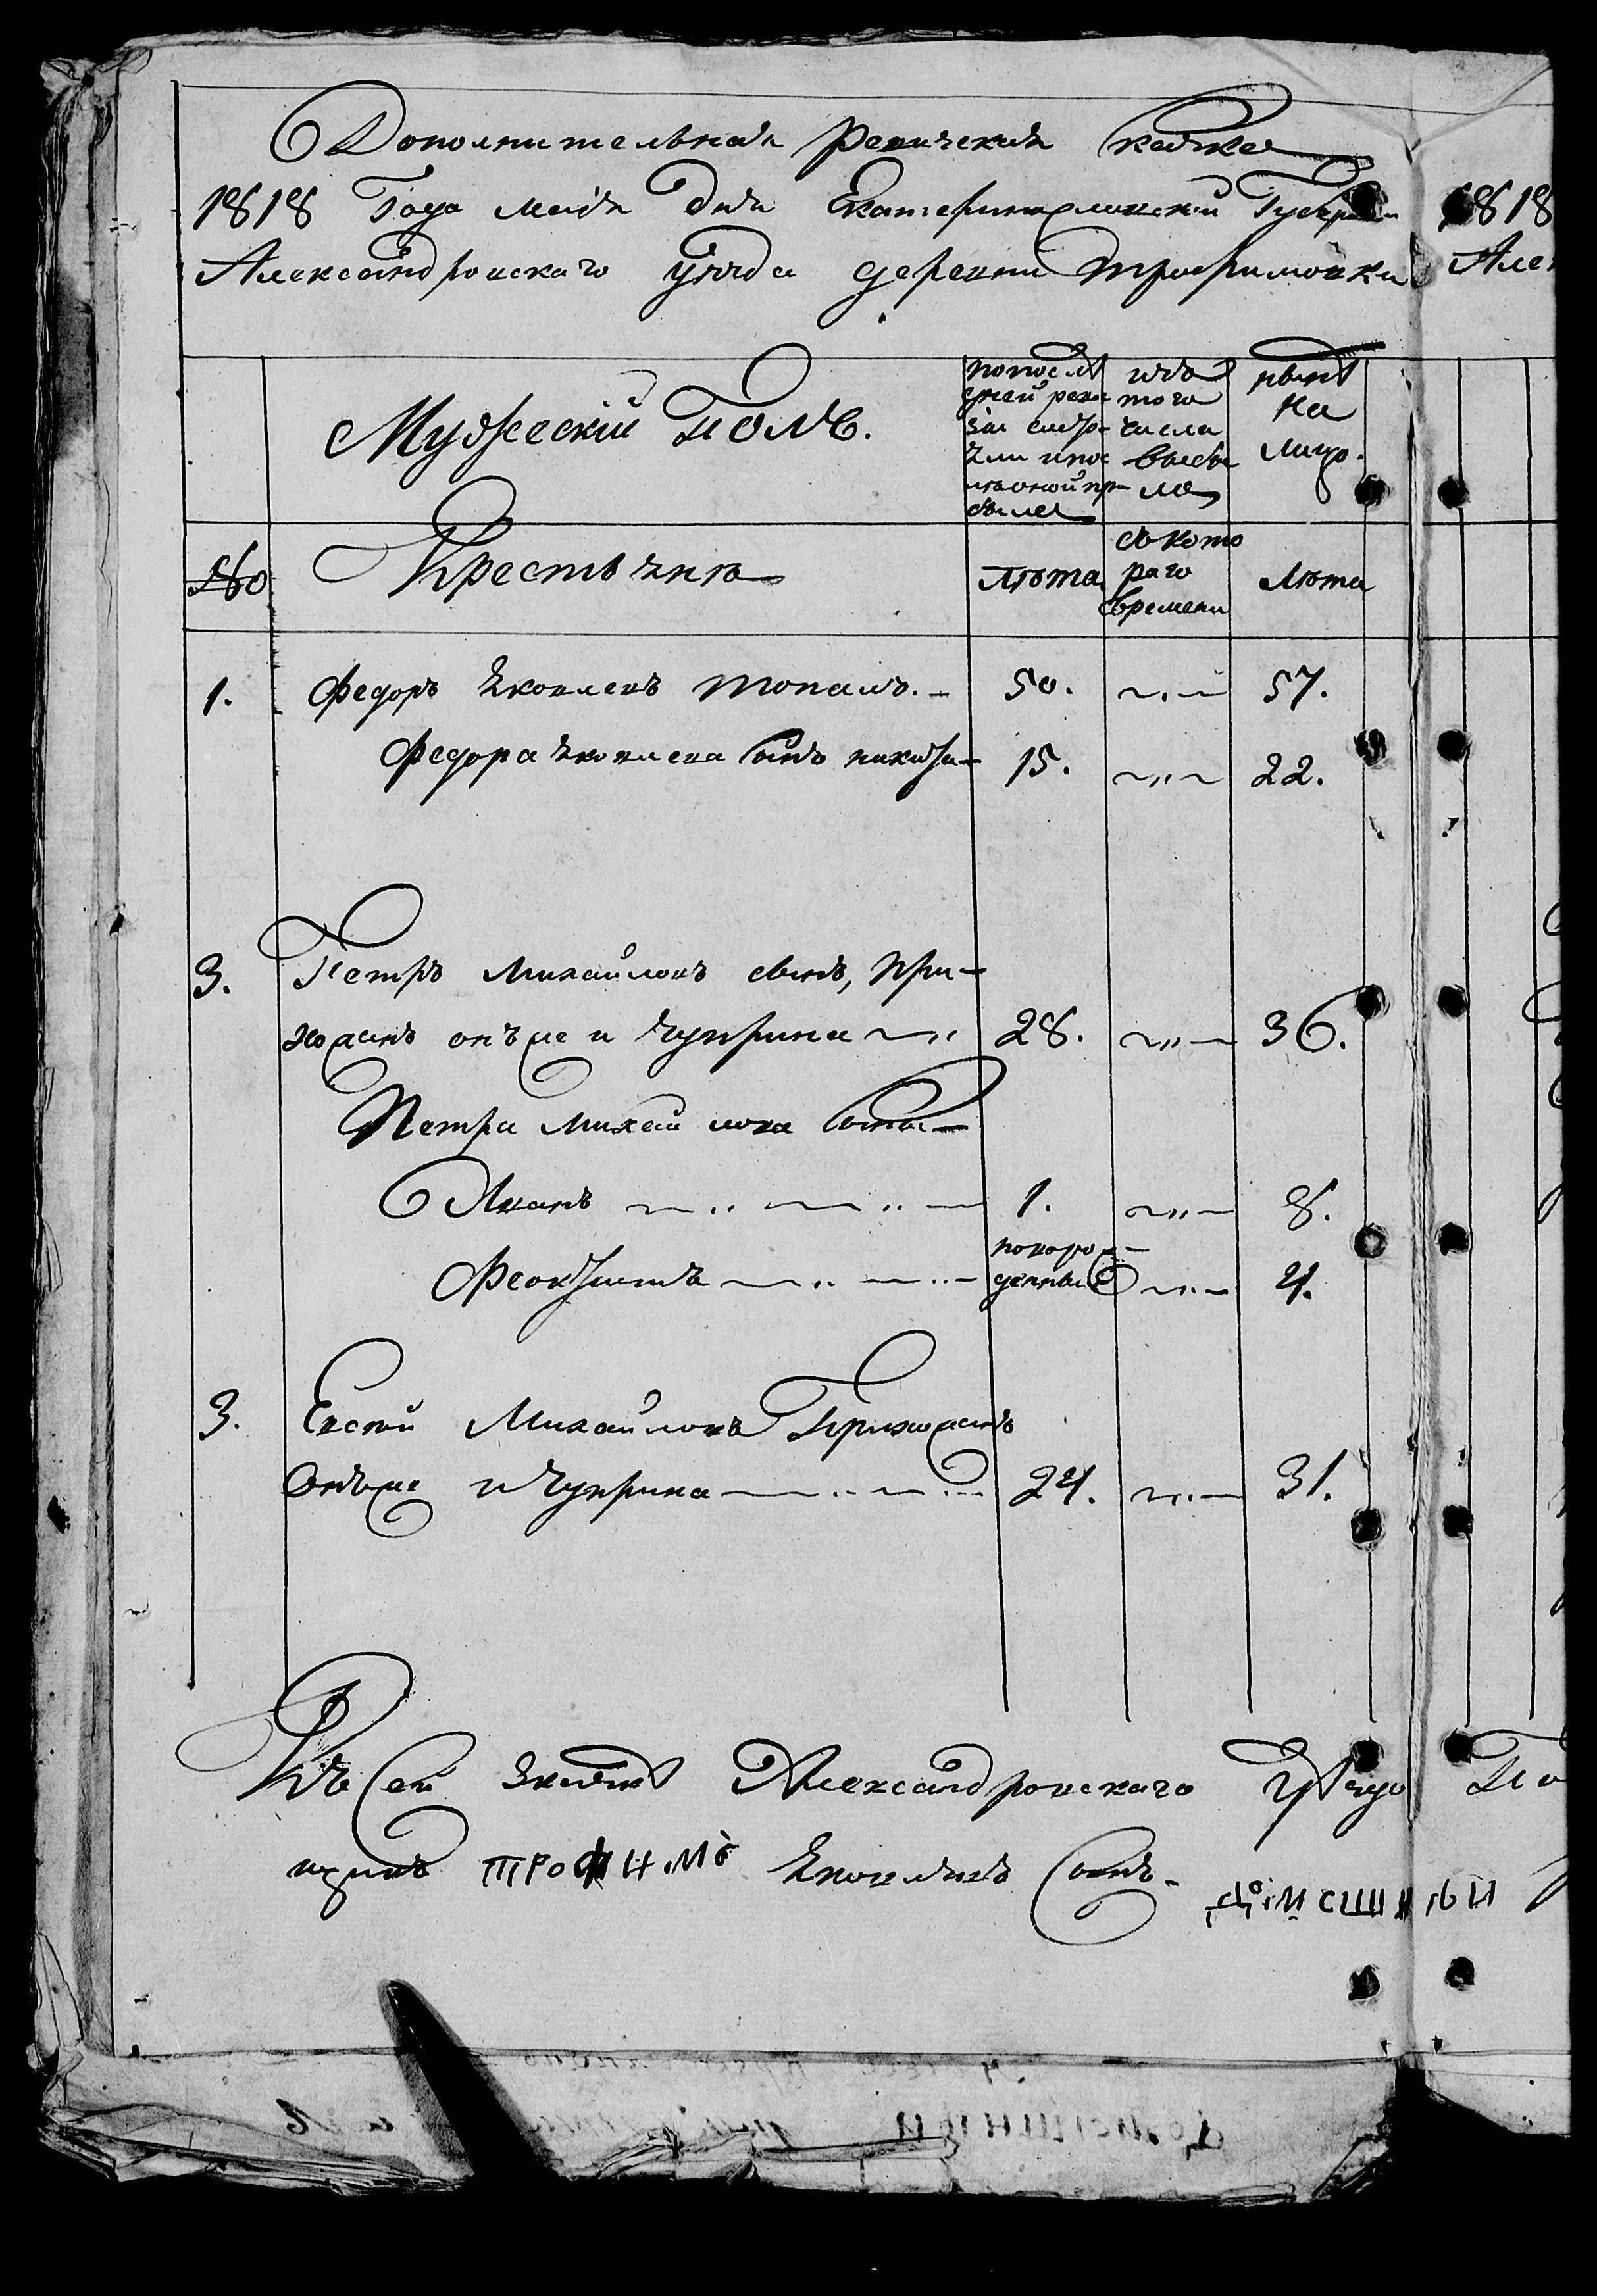 Дополнительная Ревизская сказка
1818 Года маія дня Екатеринославской Губерніи
Александровскаго уѣзда деревни Трофимовки
Мужескій Полъ.
по послѣдней ревизіи состояло и послѣ оной прибыло
изъ того числа выбыло
нынѣ на лицо.
№
Крестьянѣ
лѣта
съ котораго времени
лѣта
1. Федоръ Яковлевъ Топалъ. 50. 57.
Федора Яковлева сынъ никита 15. 22.
3. Петръ Михайловъ сынъ, При-
хожанъ онъже и Чуприна 28. 36.
Петра Михайлова сыны
Иванъ 1. 8.
Феоктистъ новорожденный 4.
3. Евсей Михайловъ Прихожанъ
онъже и Чуприна 24. 31.
Къ сей скаскѣ Александровскаго уѣзда
ТРОФИМЪ Яковлевъ сынъ
1818
Але
По